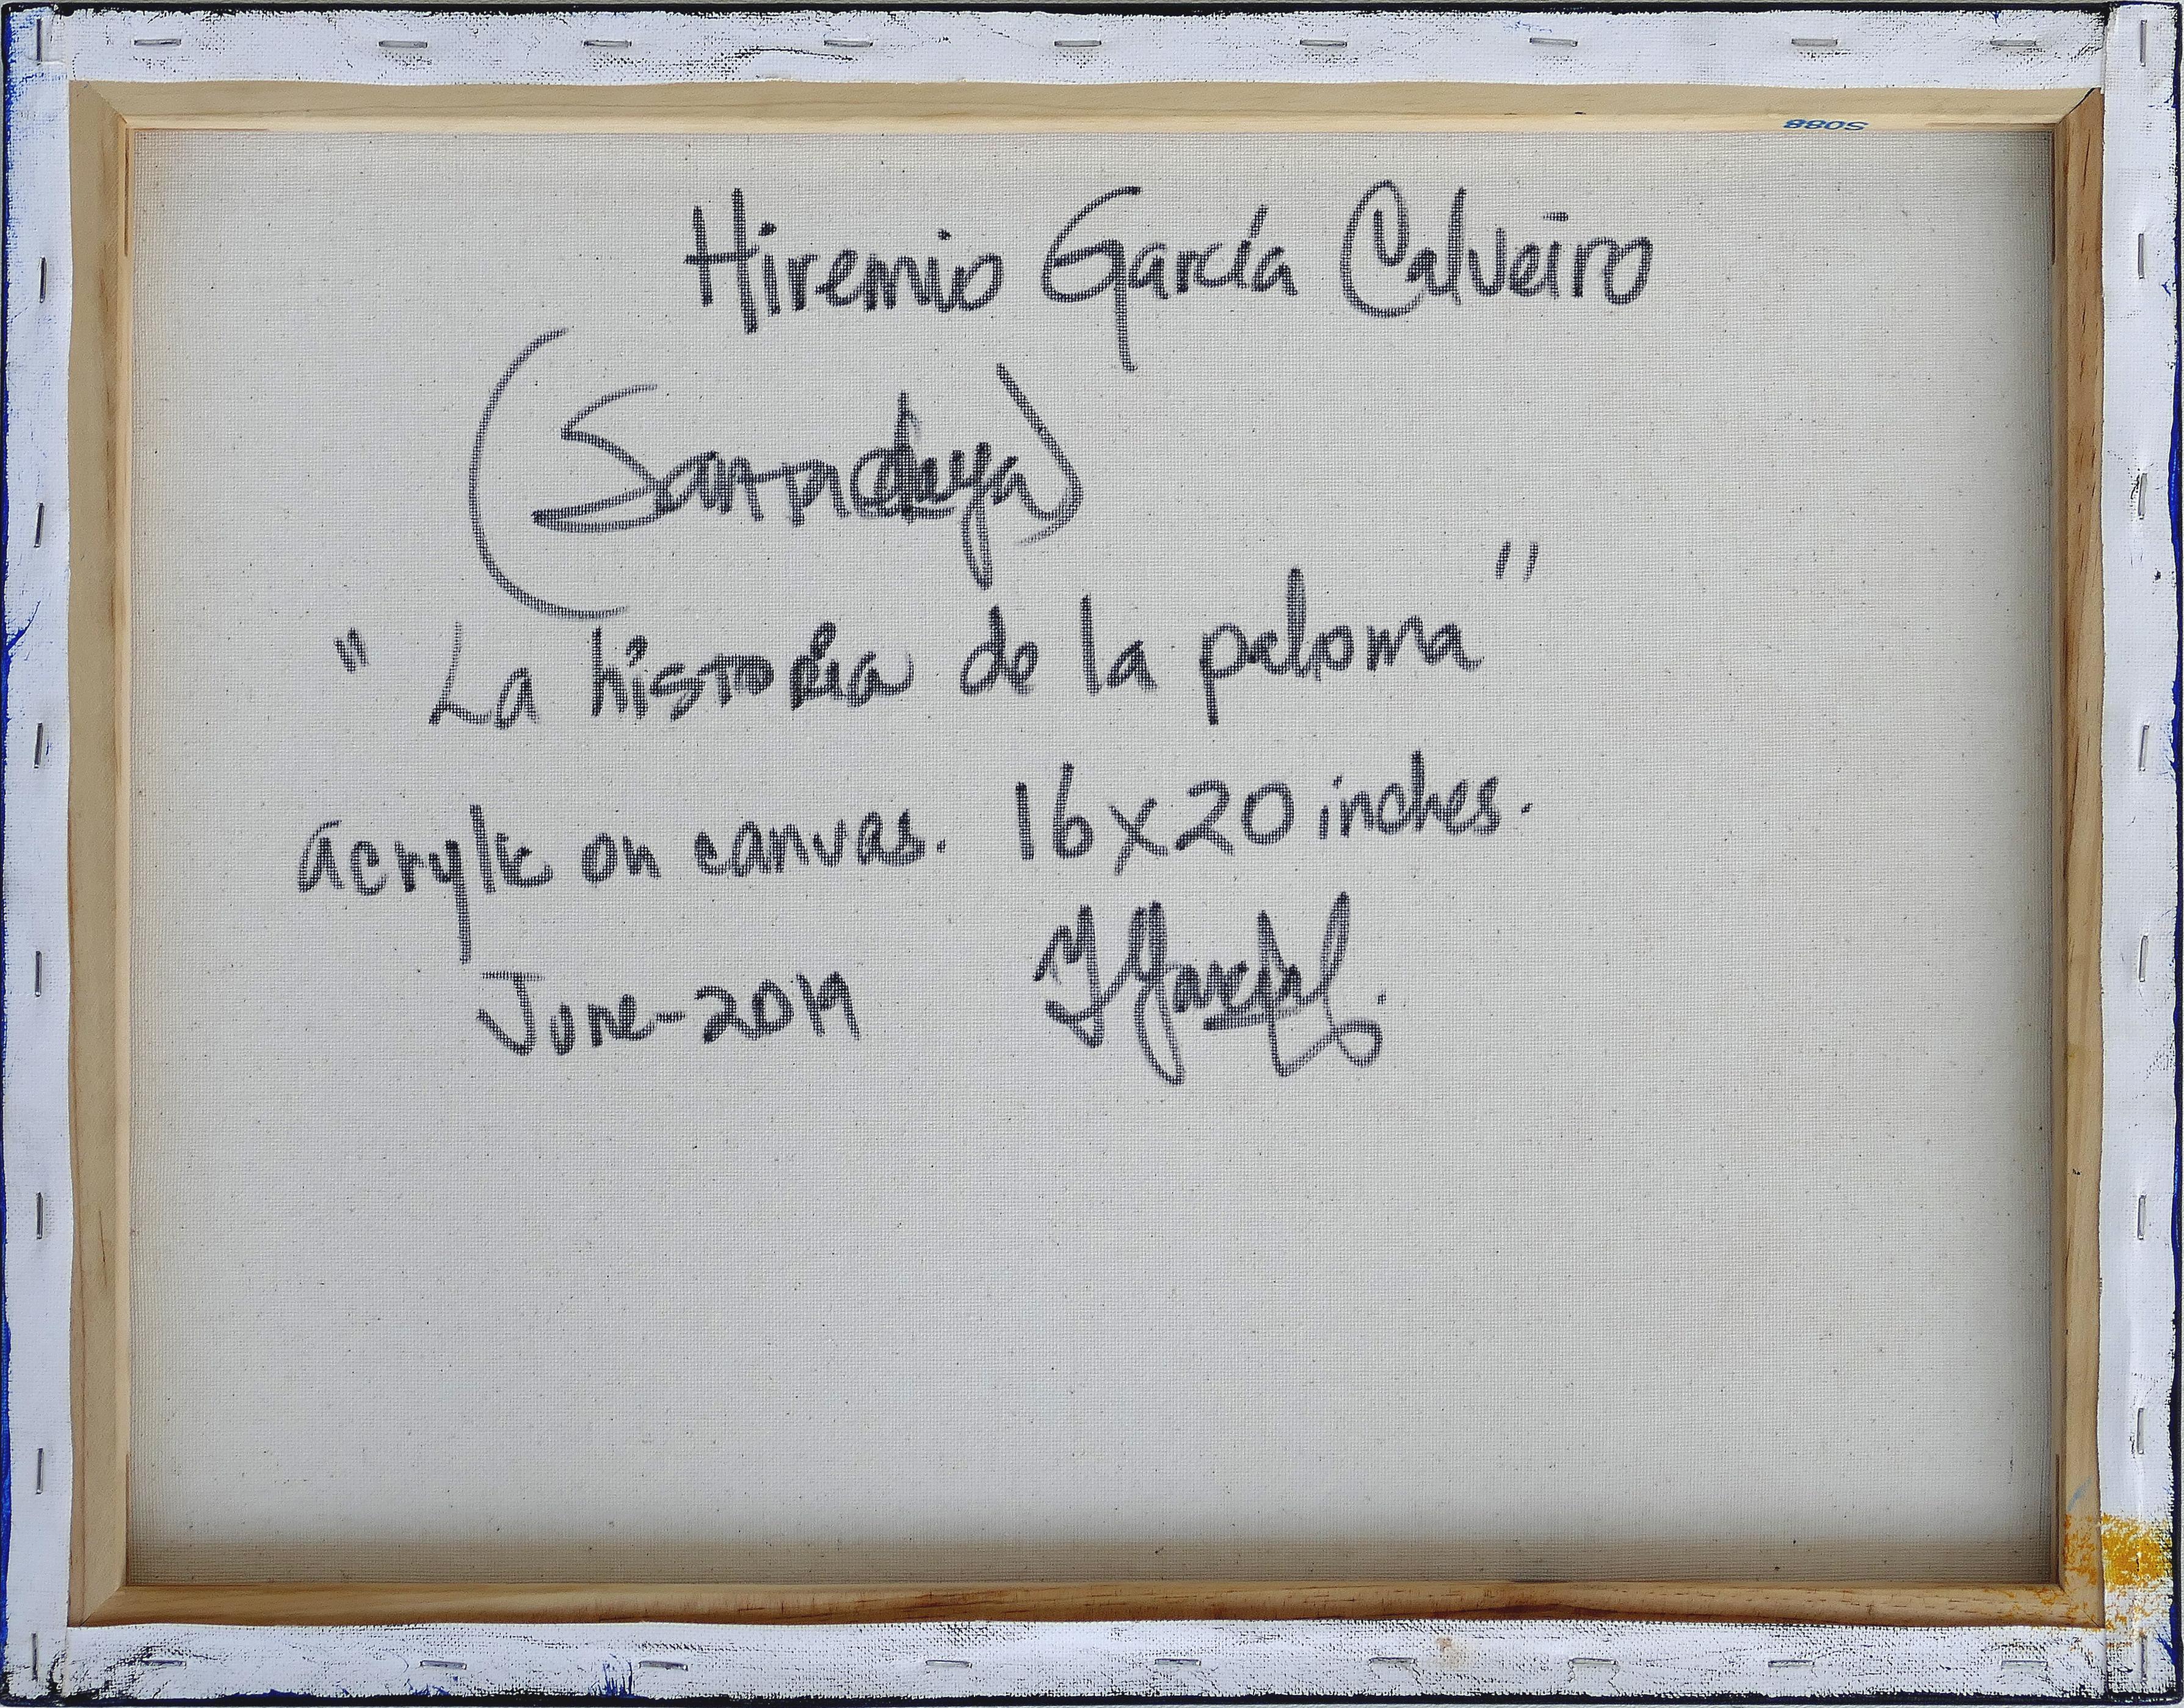 S088
Hiremio García Calveiro
"La historia de la paloma"
acrylic on canvas. 16x20 inches.
June-2019